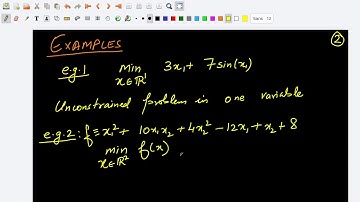 Sans 12
EXAMPLES
②
e.g.1 min x∈ℝ¹ 3x₁ + 7sin(x₁)
Unconstrained problem in one variable
e.g.2: f ≡ x² + 10x₁x₂ + 4x₂² - 12x₁ + x₂ + 8
min x∈ℝ² f(x)